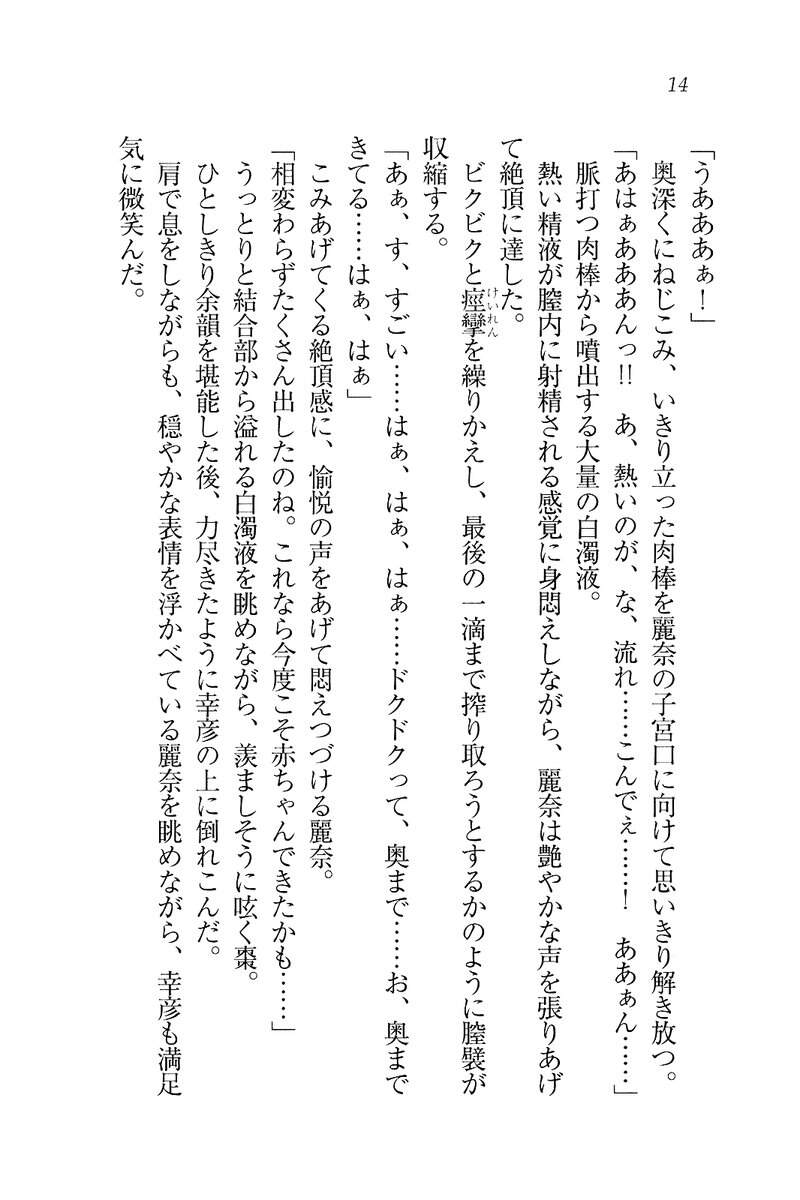 14
「うあああぁ！」
　奥深くにねじこみ、いきり立った肉棒を麗奈の子宮口に向けて思いきり解き放つ。
「あはぁあああんっ!!　あ、熱いのが、な、流れ……こんでぇ……！　ああぁん……」
　脈打つ肉棒から噴出する大量の白濁液。
　熱い精液が膣内に射精される感覚に身悶えしながら、麗奈は艶やかな声を張りあげ
て絶頂に達した。
　ビクビクと痙攣けいれんを繰りかえし、最後の一滴まで搾り取ろうとするかのように膣襞が
収縮する。
「あぁ、す、すごい……はぁ、はぁ、はぁ……ドクドクって、奥まで……お、奥まで
きてる……はぁ、はぁ」
　こみあげてくる絶頂感に、愉悦の声をあげて悶えつづける麗奈。
「相変わらずたくさん出したのね。これなら今度こそ赤ちゃんできたかも……」
　うっとりと結合部から溢れる白濁液を眺めながら、羨ましそうに呟く棗。
　ひとしきり余韻を堪能した後、力尽きたように幸彦の上に倒れこんだ。
　肩で息をしながらも、穏やかな表情を浮かべている麗奈を眺めながら、幸彦も満足
気に微笑んだ。